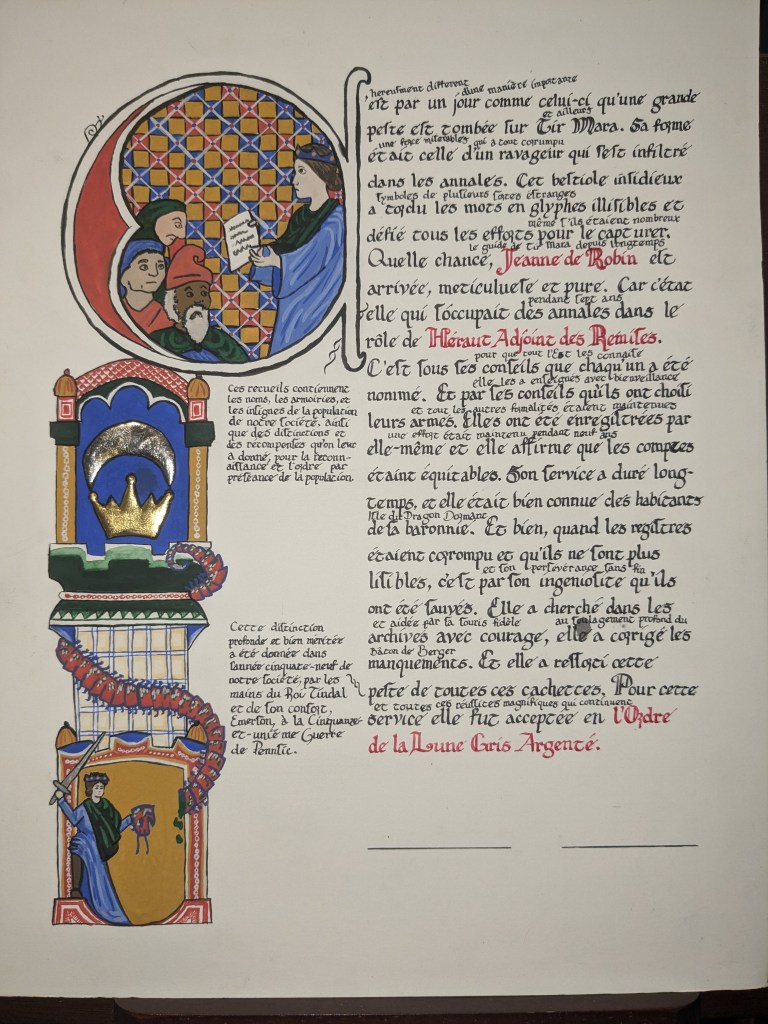 , heureusment different
d'une manière importante
est par un jour comme celui-ci qu'une grande
et ailleurs
peste est tombée sur Tir Mara. Sa forme
une force miserables qui a tout corrumpu
était celle d'un ravageur qui s'est infiltré
dans les annales. Cet bestiole insidieux
symboles de plusieurs sortes estranges
a tordu les mots en glyphes illisibles et
même s'ils étaient nombreux
défié tous les efforts pour le capturer.
le guide de Tir Mara depuis longtemps
Quelle chance, Jeanne de Robin est
arrivée, meticuluese et pure. Car c'état
pendant sept ans
elle qui s'occupait des annales dans le
rôle de Héraut Adjoint des Remises.
pour que tout l'Est les connaise
C'est sous ses conseils que chaqu'un a été
elle les a enseignés avec bienveillance
nommé. Et par les conseils qu'ils ont choisi
et tout les autres fomalités étaient maintenues
leurs armes. Elles ont été enregistrées par
une effort était maintenu pendant neuf ans
elle-même et elle affirme que les comptes
étaint équitables. Son service a duré long-
temps, et elle était bien connue des habitants
Isle du Dragon Dormant
de sa baronnie. Et bien, quand les registres
étaient corrompu et qu'ils ne sont plus
et son perseverance sans fin
lisibles, c'est par son ingeniosite qu'ils
ont été sauyés. Elle a cherché dans les
et aidée par sa souris fidèle
au soulagement profond du
archives avec courage, elle a corrigé les
Bâton de Berger
manquements. Et elle a ressorti cette
peste de toutes ces cachettes. Pour cette
et toutes ces réussites magnifiques qui continuent
service elle fut acceptée en l'Ordre
de la Lune Gris Argenté.
Ces recueils contiennent
les noms, les armoiries, et
les insignes de la population
de notre société, ainsi
que des distinctions et
des récompenses qu'on leur
a donné, pour la reconn-
aissance et l'ordre par
préséance de la population.
Cette distinction
profonde et bien méritée
a été donnée dans
l'année cinquate-neuf de
notre société, par les
mains du Roi Tindal
et de son consort,
Emerson, à la Cinquante-
et-unième Guerre
de Pennsic.